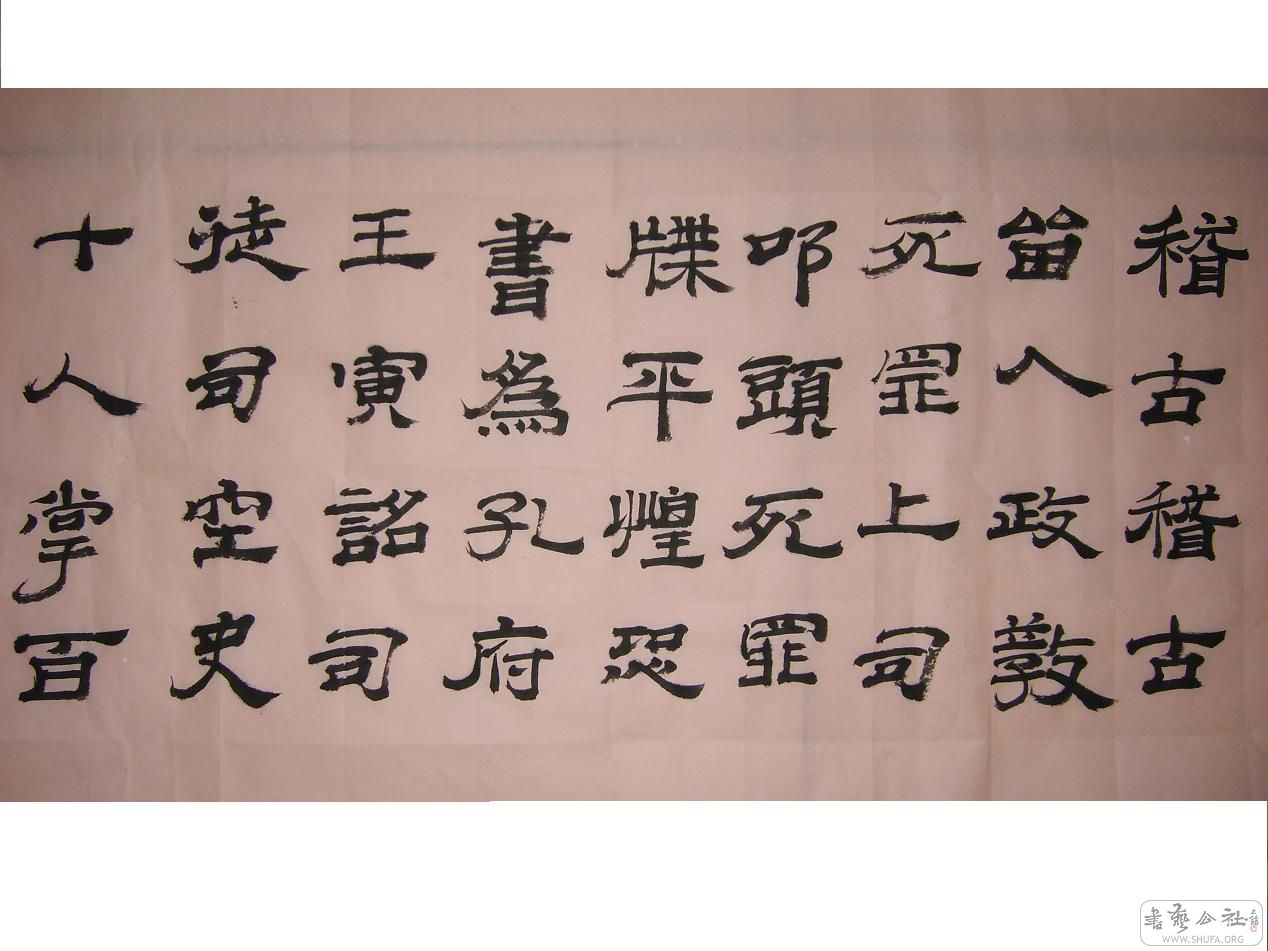 稽古稽古
當人政敦
死罪上司
叩頭死罪
牒平煌恐
書為孔府
王寅詔司
徒司空史
十人掌百
書藝公社
WWW.SHUFA.ORG